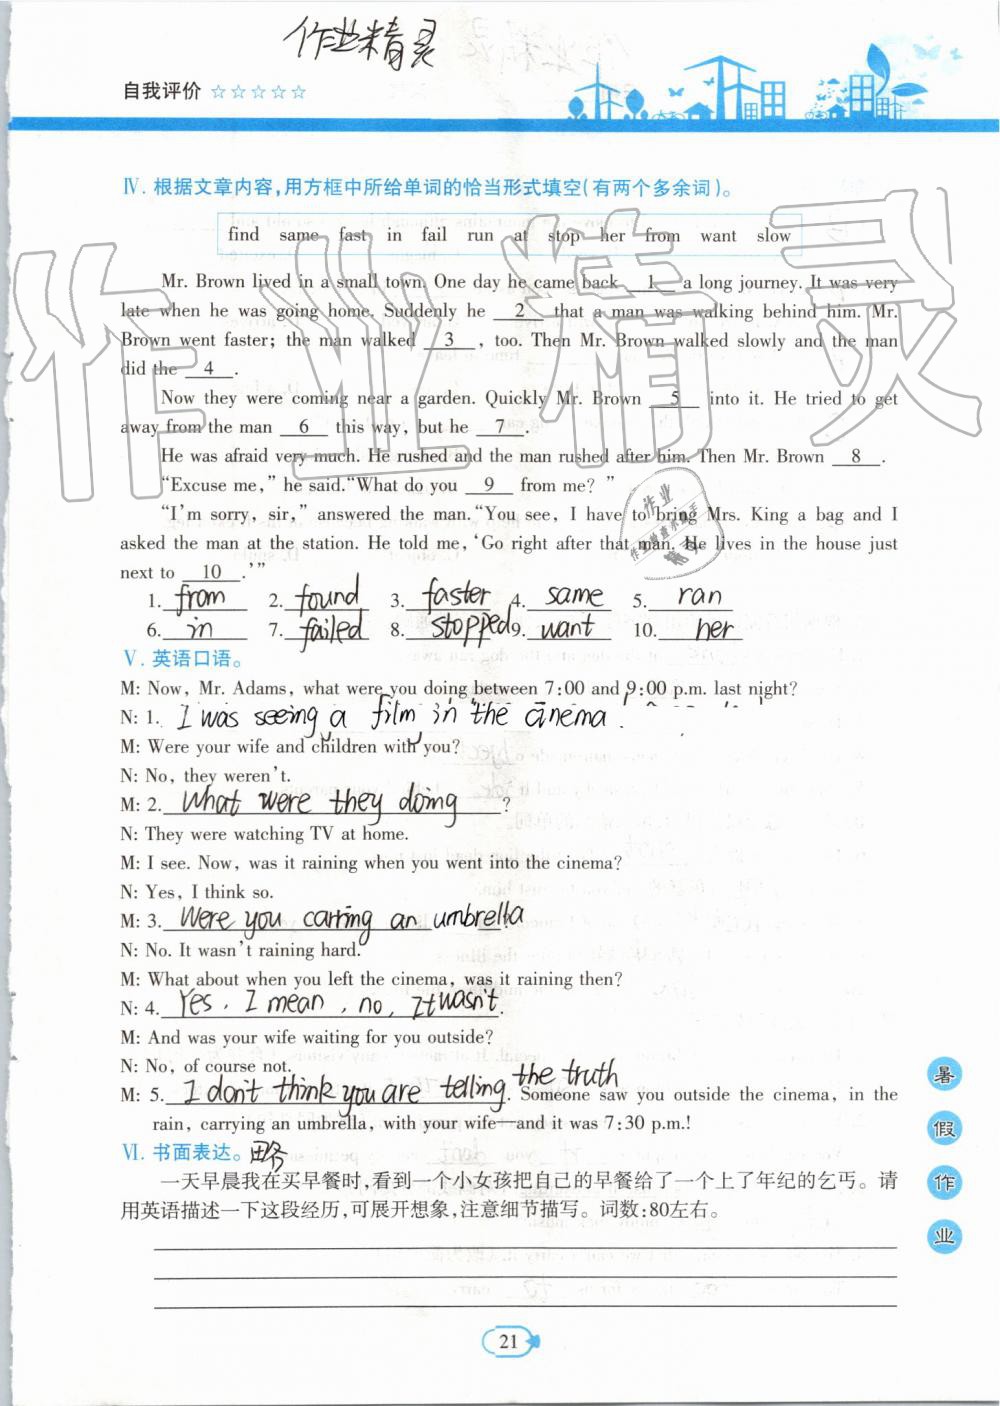 作业精灵
自我评价 ☆☆☆☆☆
Ⅳ. 根据文章内容,用方框中所给单词的恰当形式填空(有两个多余词)。
find same fast in fail run at stop her from want slow
Mr. Brown lived in a small town. One day he came back 1 a long journey. It was very
late when he was going home. Suddenly he 2 that a man was walking behind him. Mr.
Brown went faster; the man walked 3 , too. Then Mr. Brown walked slowly and the man
did the 4 .
Now they were coming near a garden. Quickly Mr. Brown 5 into it. He tried to get
away from the man 6 this way, but he 7 .
He was afraid very much. He rushed and the man rushed after him. Then Mr. Brown 8 .
“Excuse me,” he said.“What do you 9 from me?”
“I'm sorry, sir,” answered the man.“You see, I have to bring Mrs. King a bag and I
asked the man at the station. He told me, ‘Go right after that man. He lives in the house just
next to 10 .’”
1. from 2. found 3. faster 4. same 5. ran
6. in 7. failed 8. stopped 9. want 10. her
Ⅴ. 英语口语。
M: Now, Mr. Adams, what were you doing between 7:00 and 9:00 p.m. last night?
N: 1. I was seeing a film in the cinema.
M: Were your wife and children with you?
N: No, they weren't.
M: 2. What were they doing ?
N: They were watching TV at home.
M: I see. Now, was it raining when you went into the cinema?
N: Yes, I think so.
M: 3. Were you carring an umbrella?
N: No. It wasn't raining hard.
M: What about when you left the cinema, was it raining then?
N: 4. Yes, I mean, no, It wasn't.
M: And was your wife waiting for you outside?
N: No, of course not.
M: 5. I don't think you are telling the truth. Someone saw you outside the cinema, in the
rain, carrying an umbrella, with your wife—and it was 7:30 p.m.!
Ⅵ. 书面表达。略
一天早晨我在买早餐时,看到一个小女孩把自己的早餐给了一个上了年纪的乞丐。请
用英语描述一下这段经历,可展开想象,注意细节描写。词数:80左右。
暑
假
作
业
21
作业精灵